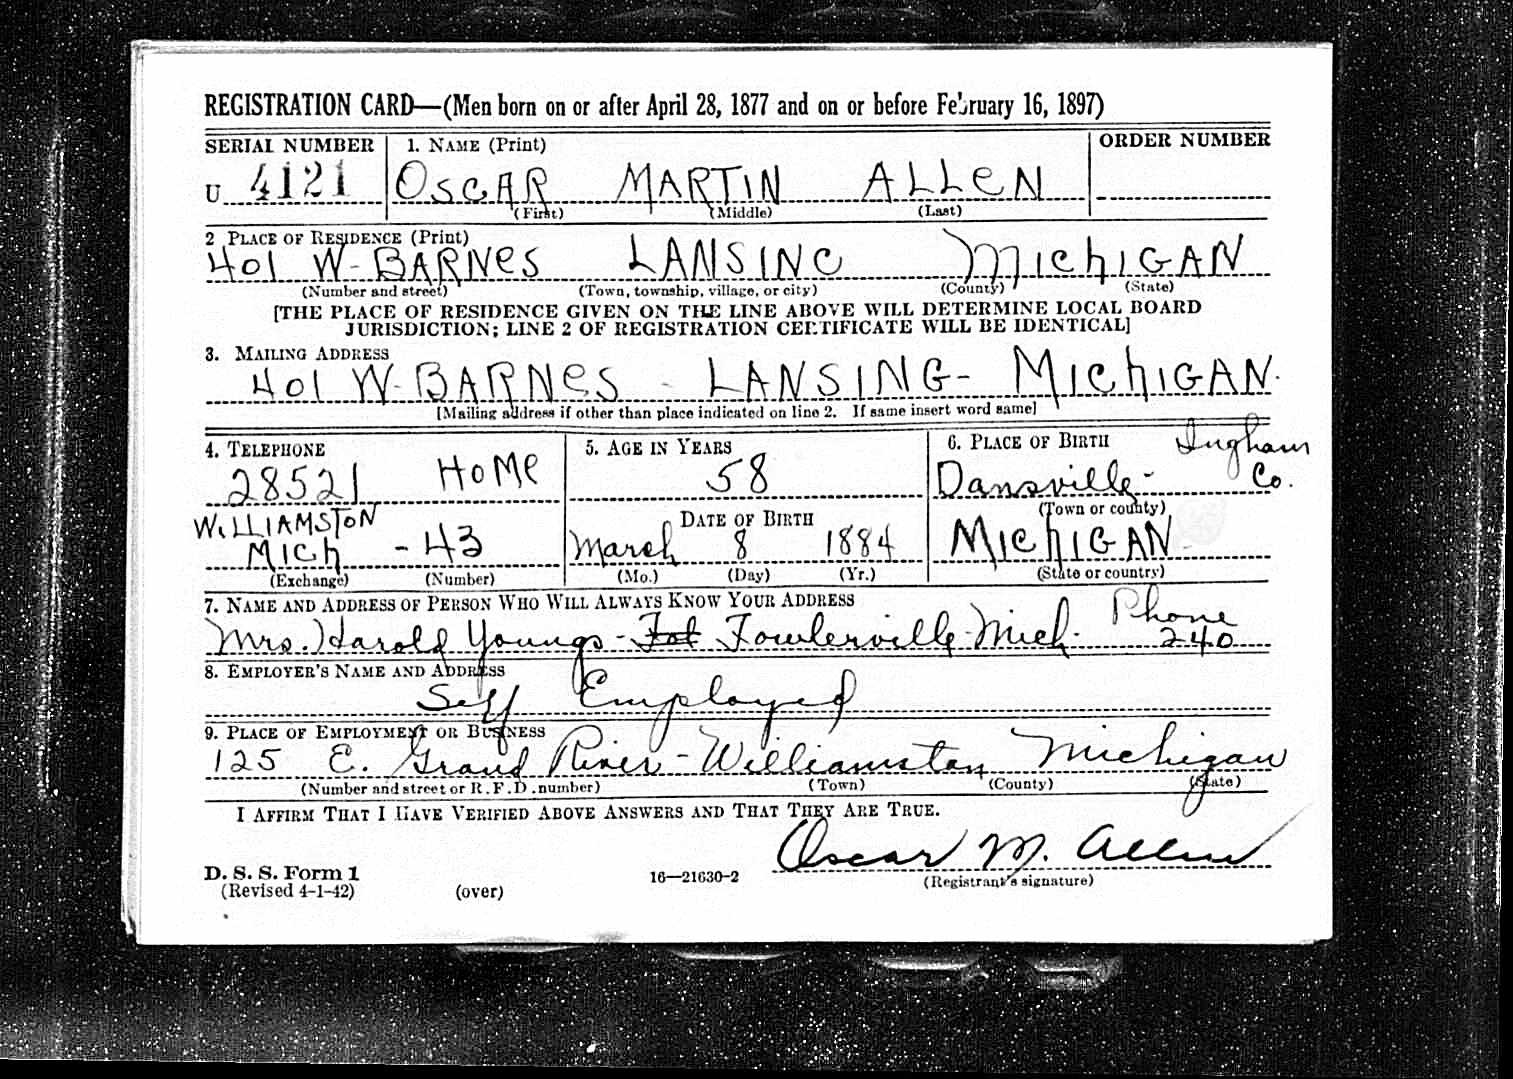 REGISTRATION CARD—(Men born on or after April 28, 1877 and on or before February 16, 1897)
SERIAL NUMBER 1. NAME (Print) ORDER NUMBER
U 4121 OSCAR MARTIN ALLEN
(First) (Middle) (Last)
2 PLACE OF RESIDENCE (Print)
401 W-BARNES LANSING MICHIGAN
(Number and street) (Town, township, village, or city) (County) (State)
[THE PLACE OF RESIDENCE GIVEN ON THE LINE ABOVE WILL DETERMINE LOCAL BOARD
JURISDICTION; LINE 2 OF REGISTRATION CERTIFICATE WILL BE IDENTICAL]
3. MAILING ADDRESS
401 W-BARNES - LANSING- MICHIGAN.
[Mailing address if other than place indicated on line 2. If same insert word same]
4. TELEPHONE 5. AGE IN YEARS 6. PLACE OF BIRTH Ingham
28521 HOME 58 Dansville- Co.
(Town or county)
WILLIAMSTON DATE OF BIRTH
MICH - 43 March 8 1884 MICHIGAN
(Exchange) (Number) (Mo.) (Day) (Yr.) (State or country)
7. NAME AND ADDRESS OF PERSON WHO WILL ALWAYS KNOW YOUR ADDRESS Phone
Mrs. Harold Youngs - Fowlerville Mich. 240
8. EMPLOYER'S NAME AND ADDRESS
Self Employed
9. PLACE OF EMPLOYMENT OR BUSINESS
125 E. Grand River - Williamston Michigan
(Number and street or R.F.D. number) (Town) (County) (State)
I AFFIRM THAT I HAVE VERIFIED ABOVE ANSWERS AND THAT THEY ARE TRUE.
Oscar M. Allen
D. S. S. Form 1 16—21630-2 (Registrant's signature)
(Revised 4-1-42) (over)